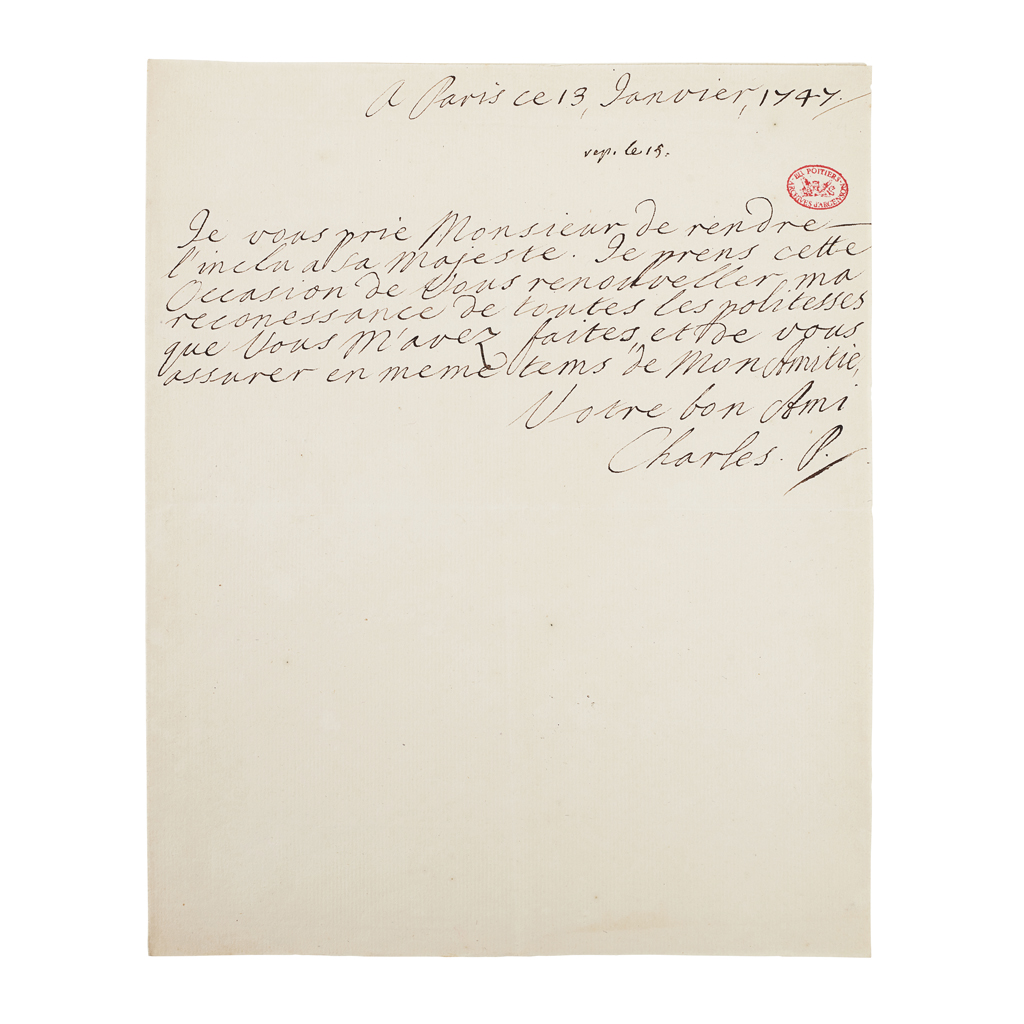 A Paris ce 13, Janvier, 1747.
rep. le 15.
BU POITIERS
ARCHIVES D'ARGENSON
Je vous prie Monsieur de rendre
l'inclu a sa Majeste. Je prens cette
Occasion de Vous renouveller ma
reconessance de toutes les politesses
que Vous M'avez faites, et de vous
assurer en meme tems de Mon Amitie,
Votre bon Ami
Charles. P.